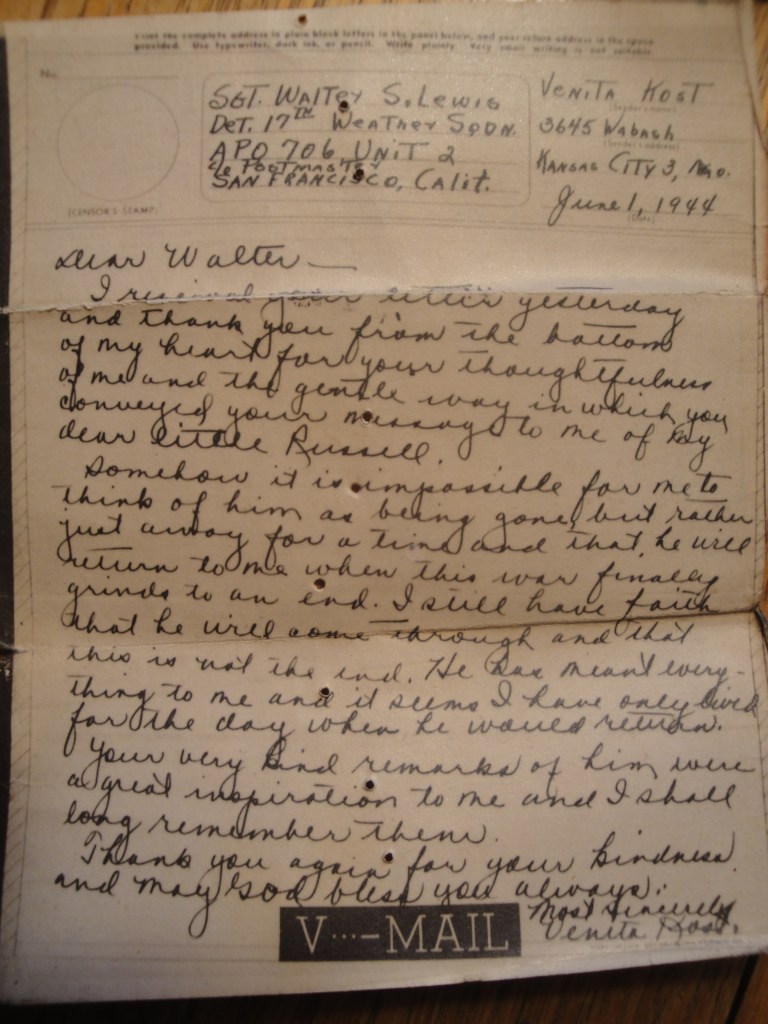 Print the complete address in plain block letters in the panel below, and your return address in the space
provided. Use typewriter, dark ink, or pencil. Write plainly. Very small writing is not suitable.
No.
SGT. WALTER S. LEWIS
DET. 17TH WEATHER SQDN.
APO 706 UNIT 2
c/o POSTMASTER
SAN FRANCISCO, CALIF.
(CENSOR'S STAMP)
VENITA KOST
(Sender's name)
3645 Wabash
(Sender's address)
KANSAS CITY 3, Mo.
June 1, 1944
(Date)
Dear Walter —
I received your letter yesterday
and thank you from the bottom
of my heart for your thoughtfulness
of me and the gentle way in which you
conveyed your message to me of my
dear little Russell.
Somehow it is impossible for me to
think of him as being gone, but rather
just away for a time and that he will
return to me when this war finally
grinds to an end. I still have faith
that he will come through and that
this is not the end. He has meant every-
thing to me and it seems I have only lived
for the day when he would return.
Your very kind remarks of him were
a great inspiration to me and I shall
long remember them.
Thank you again for your kindness
and may God bless you always.
Most sincerely,
Venita Kost.
V···–MAIL